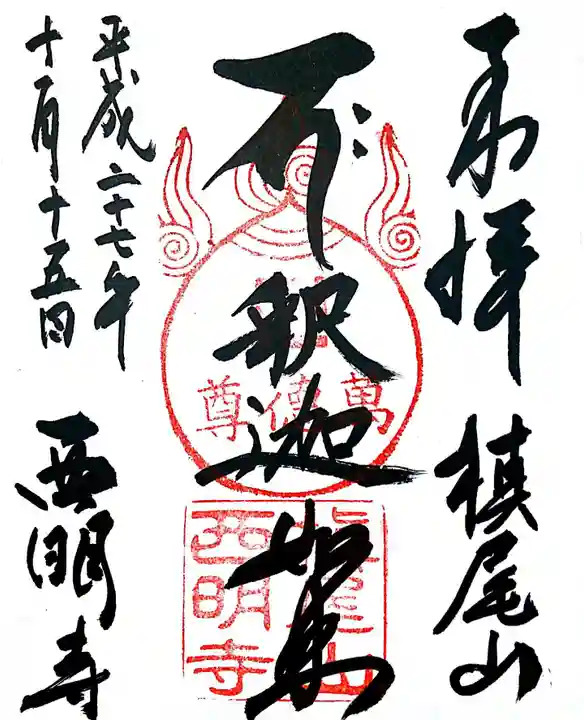 奉拝 槇尾山
釈迦如来
平成二十七年
十一月十五日
西明寺
萬德尊
槇尾山
西明寺